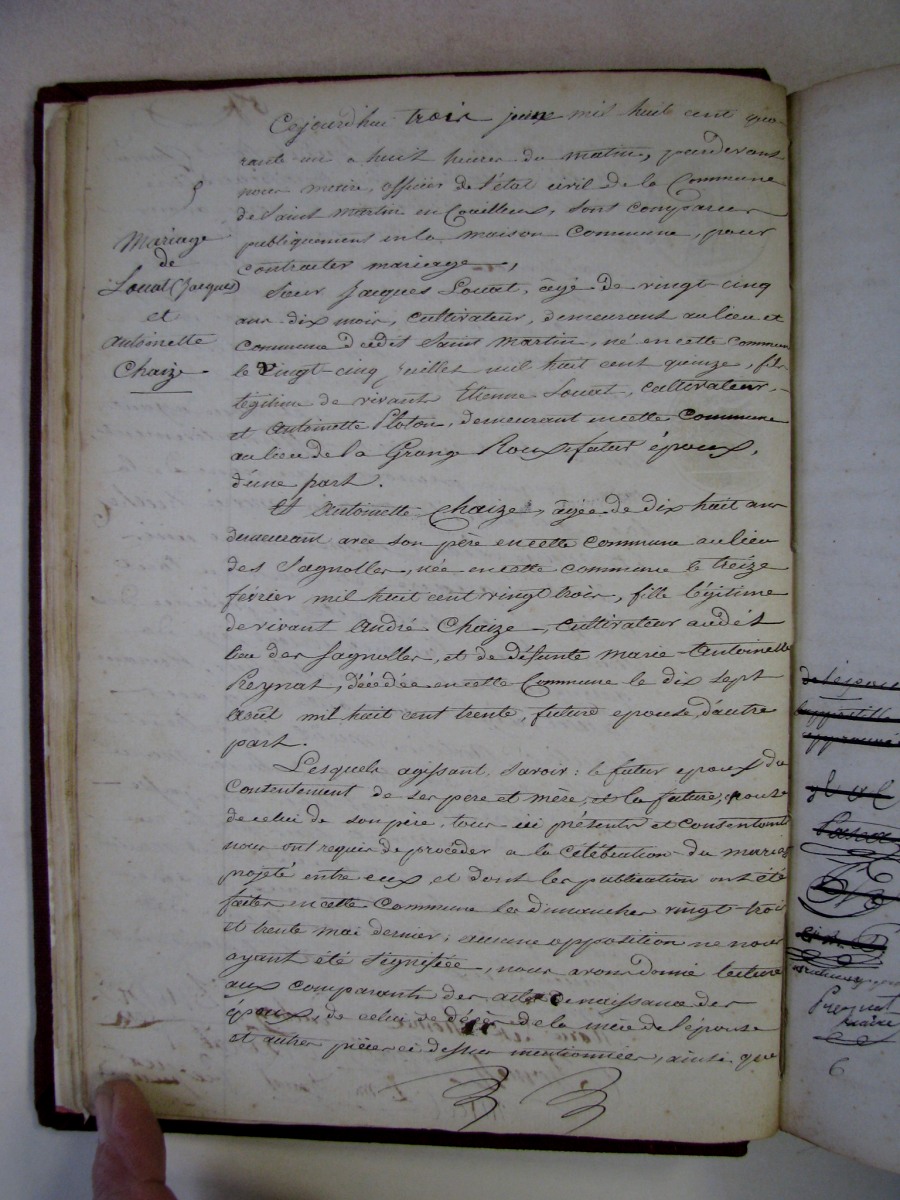 5
Mariage
de
Louat (Jacques)
et
Antoinette
Chaize
Cejourdhui trois juin mil huit cent qua-
rante un a huit heures du matin, pardevant
nous maire, officier de l'état civil de la Commune
de Saint Martin en Coailleux, sont comparus
publiquement en la maison Commune, pour
contracter mariage,
Sieur Jacques Louat, âgé de vingt-cinq
ans dix mois, cultivateur, demeurant au lieu et
Commune dudit Saint Martin, né en cette Commune
le vingt-cinq juillet mil huit cent quinze, fils
légitime de vivant Etienne Louat, cultivateur,
et Antoinette Ploton, demeurant en cette Commune
au lieu de la Grange Roux, futur époux,
d'une part.
Et Antoinette Chaize, âgée de dix huit ans
demeurant avec son père en cette commune au lieu
des Sagnolles, née en cette commune le treize
février mil huit cent vingt trois, fille légitime
de vivant André Chaize, cultivateur audit
lieu des Sagnolles, et de défunte Marie Antoinette
Reynat, décédée en cette Commune le dix sept
août mil huit cent trente, future epouse, d'autre
part.
Lesquels agissant, savoir: le futur epoux du
Consentement de ses pere et mère, et la future epouse
de celui de son père, tous ici présents et consentants
nous ont requis de procéder a la célébration du mariage
projeté entre eux et dont les publication ont été
faites en cette Commune les dimanches vingt-trois
et trente mai dernier; aucune opposition ne nous
ayant été signifiée, nous avons donné lecture
aux comparants des actes de naissance des
époux, de celui de décès de la mère de l'épouse
et autres pièces ci dessus mentionnées, ainsi que
6